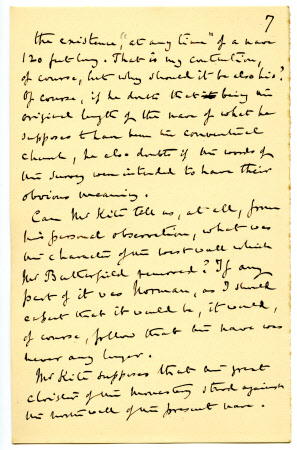 7
the existence, "at any time" of a nave
120 feet long. That is my contention,
of course, but why should it be also his?
Of course, if he doubts that being the
original length of the nave of what he
supposes to have been the conventual
church, he also doubts if the words of
the survey were intended to have their
obvious meaning.
Can Mr Kite tell us, at all, from
his personal observation, what was
the character of the west wall which
Mr Butterfield removed? If any
part of it was Norman, as I should
expect that it would be, it would,
of course, follow that the nave was
never any longer.
Mr Kite supposes that the great
cloister of the monastery stood against
the north wall of the present nave.